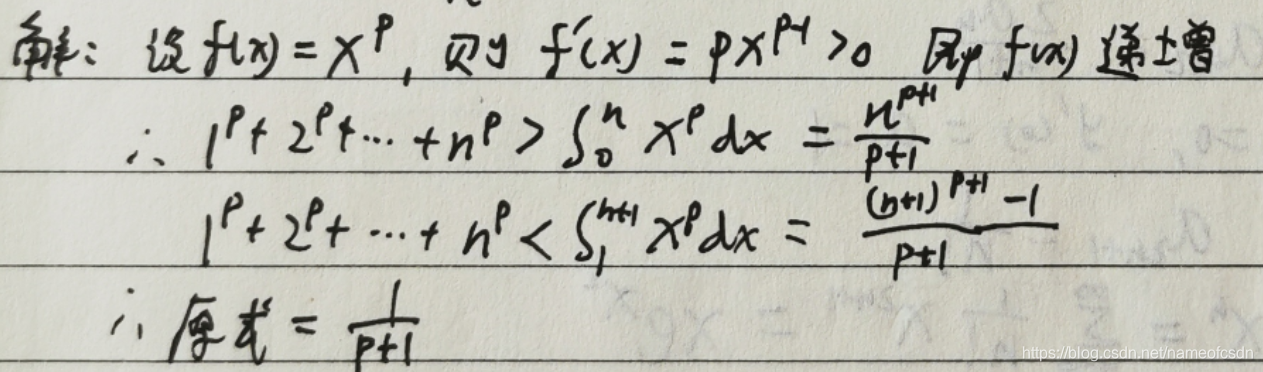 解: 设 f(x) = x^p, 则 f'(x) = px^{p-1} > 0 即 f(x) 递增
∴ 1^p + 2^p + ... + n^p > ∫_0^n x^p dx = \frac{n^{p+1}}{p+1}
1^p + 2^p + ... + n^p < ∫_1^{n+1} x^p dx = \frac{(n+1)^{p+1} - 1}{p+1}
∴ 原式 = \frac{1}{p+1}
https://blog.csdn.net/nameofcsdn